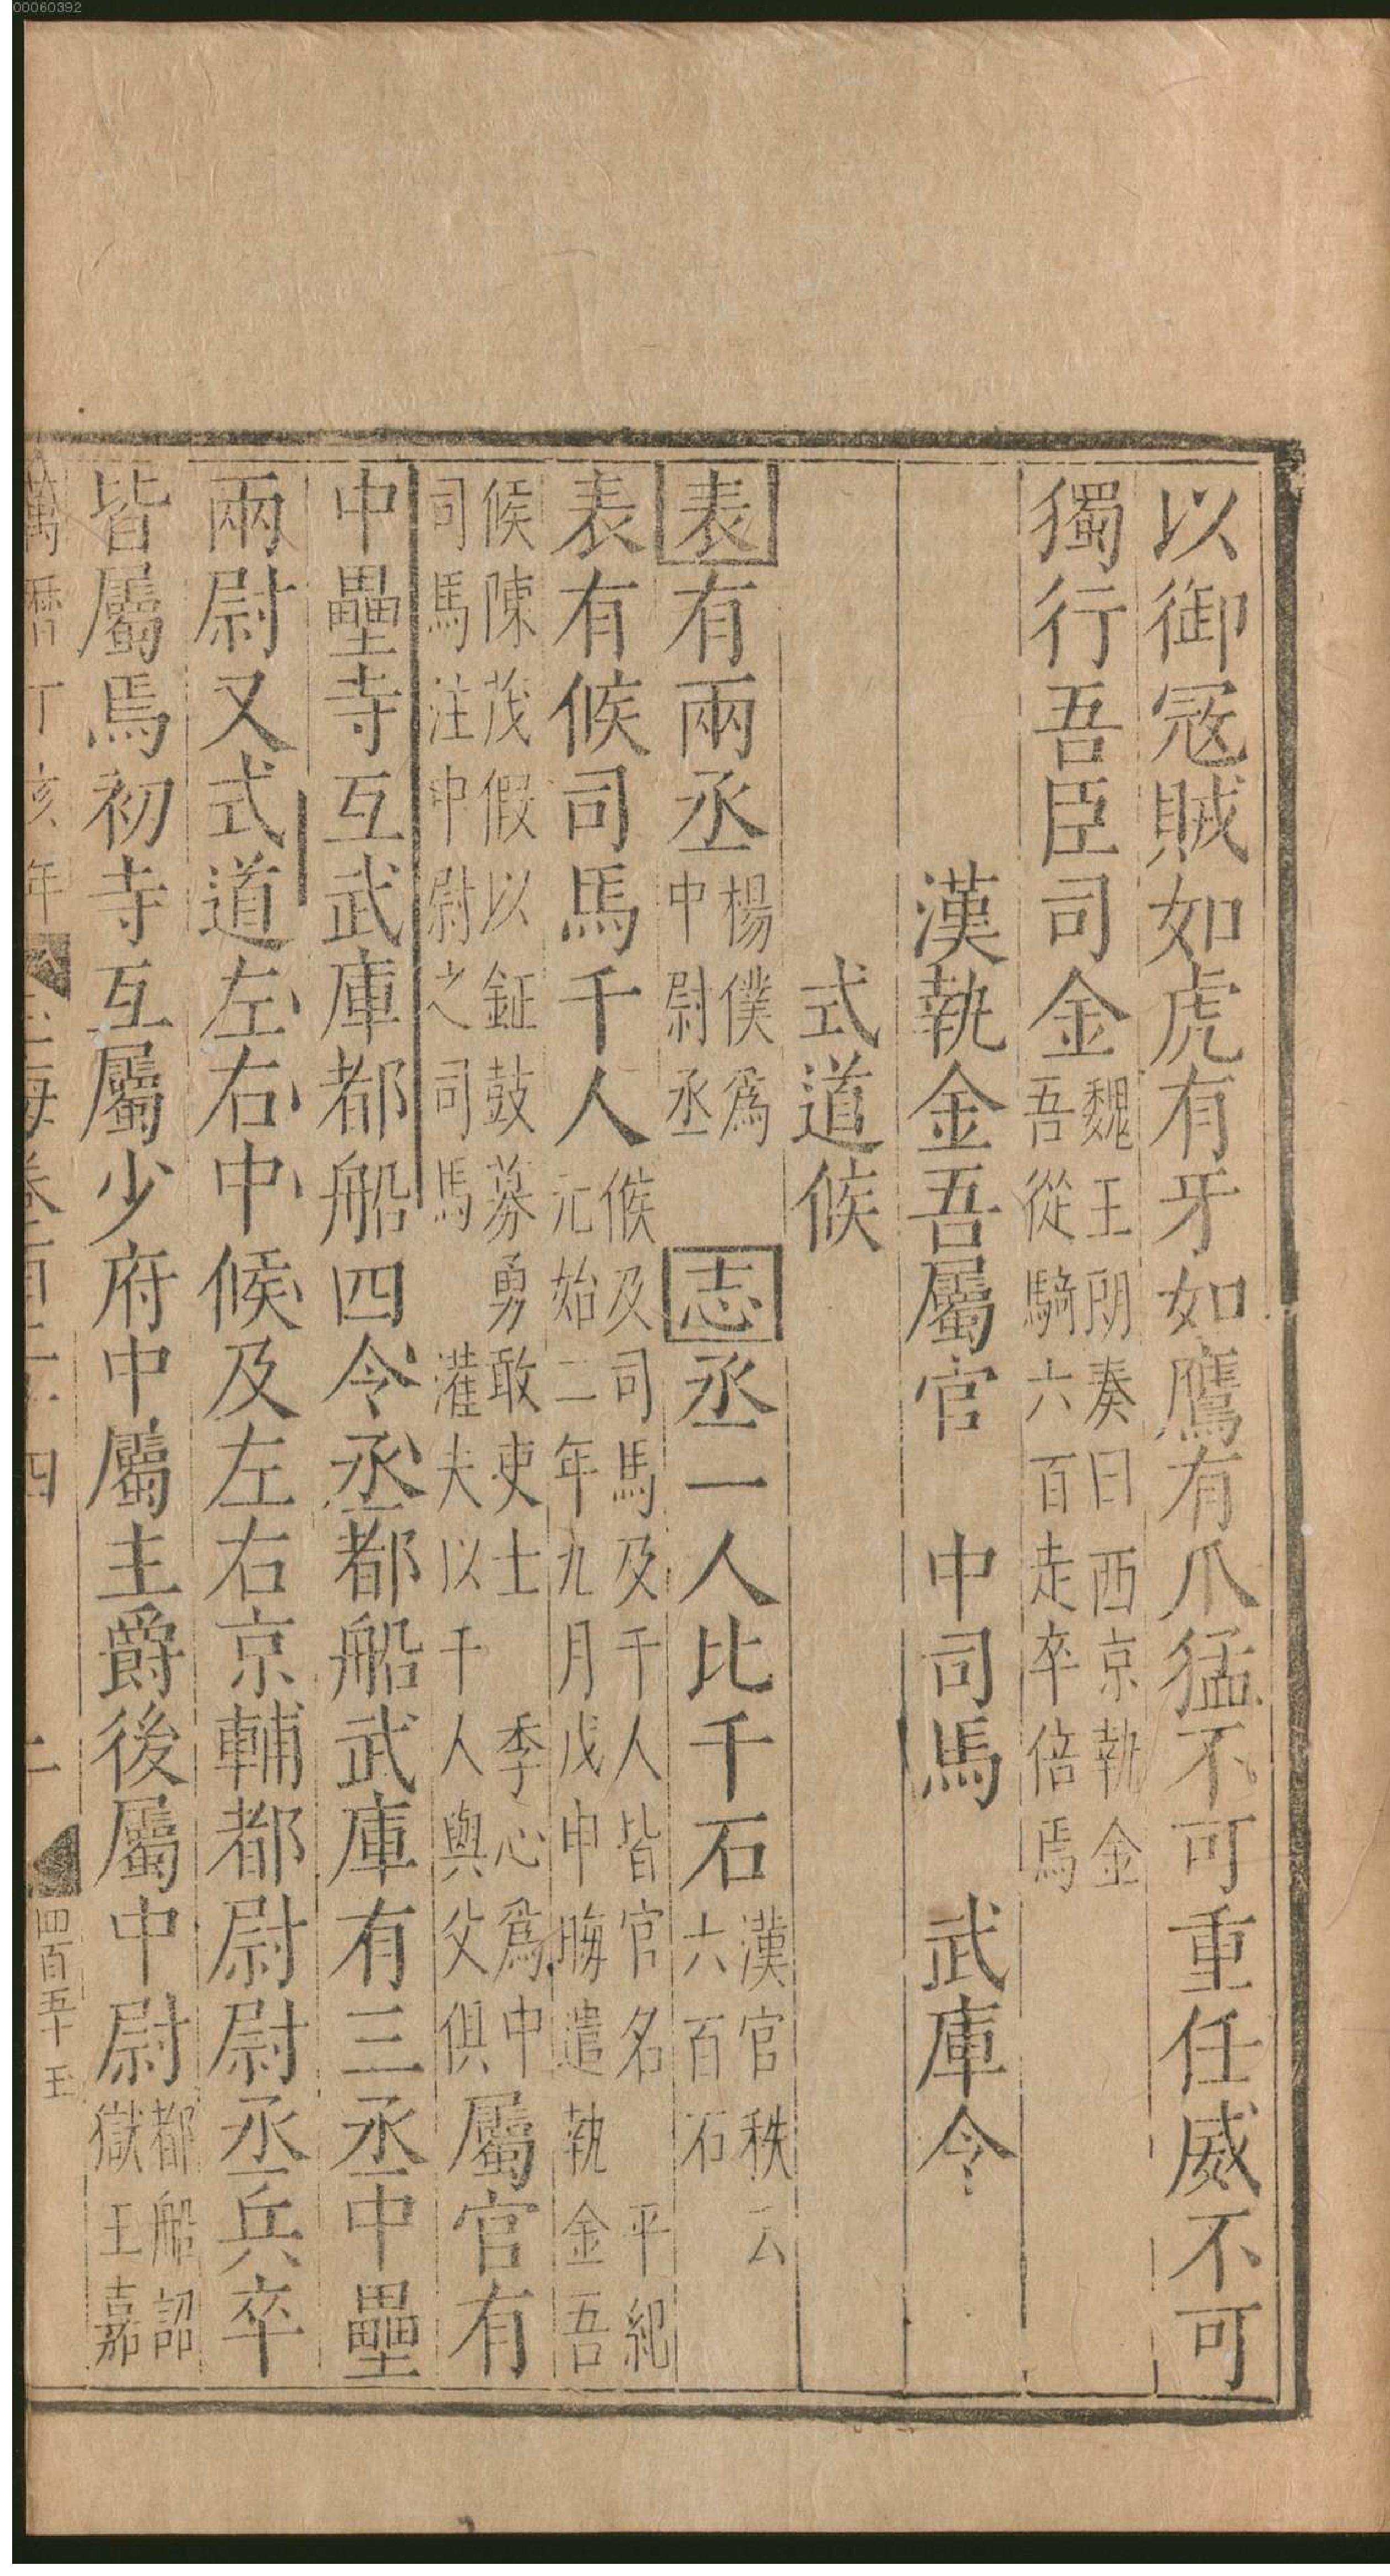 00060392
以御冦賊如虎有牙如鷹有爪猛不可重任威不可
獨行吾臣司金魏王朗奏曰西京執金吾從騎六百走卒倍焉
漢執金吾屬官　中司馬　武庫令
式道候
表有兩丞楊僕爲中尉丞　志丞一人比千石漢官秩云六百石
表有候司馬千人候及司馬及千人皆官名　平紀元始二年九月戊申晦遣執金吾
候陳茂假以鉦鼓募勇敢吏士　季心爲中司馬注中尉之司馬　灌夫以千人與父俱屬官有
中壘寺互武庫都船四令丞都船武庫有三丞中壘
兩尉又式道左右中候及左右京輔都尉尉丞兵卒
皆屬焉初寺互屬少府中屬主爵後屬中尉都船詔獄王嘉
萬曆丁亥年　玉海卷百二十四　二　四百五十五